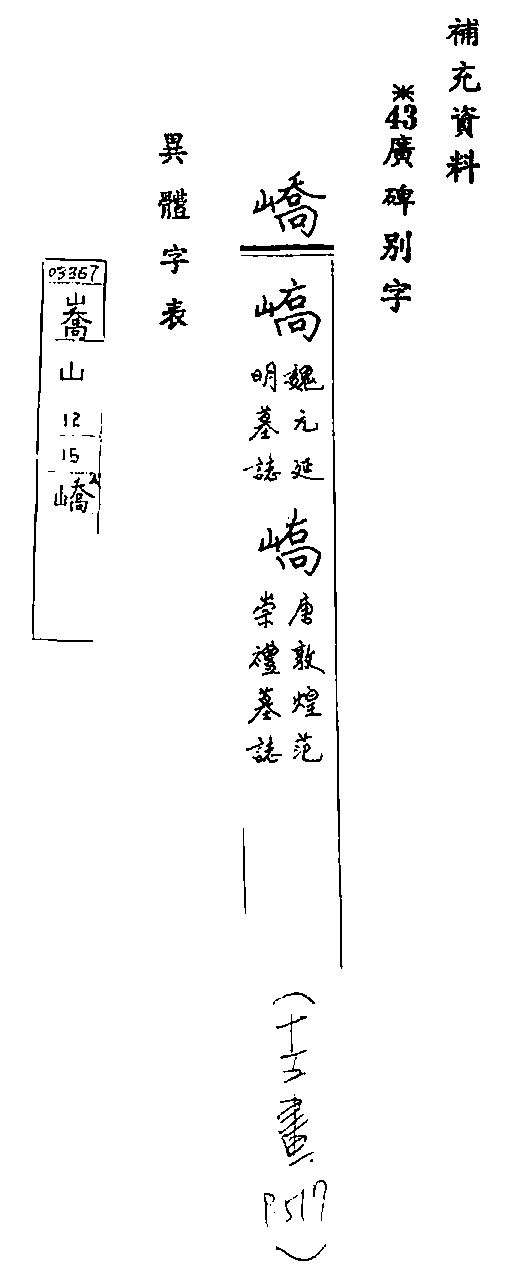 補充資料
※43廣碑別字
嶠
魏元延
明墓誌
唐敦煌范
崇禮墓誌
(十五畫 P.517)
異體字表
03367
㠐
山
12
15
嶠2